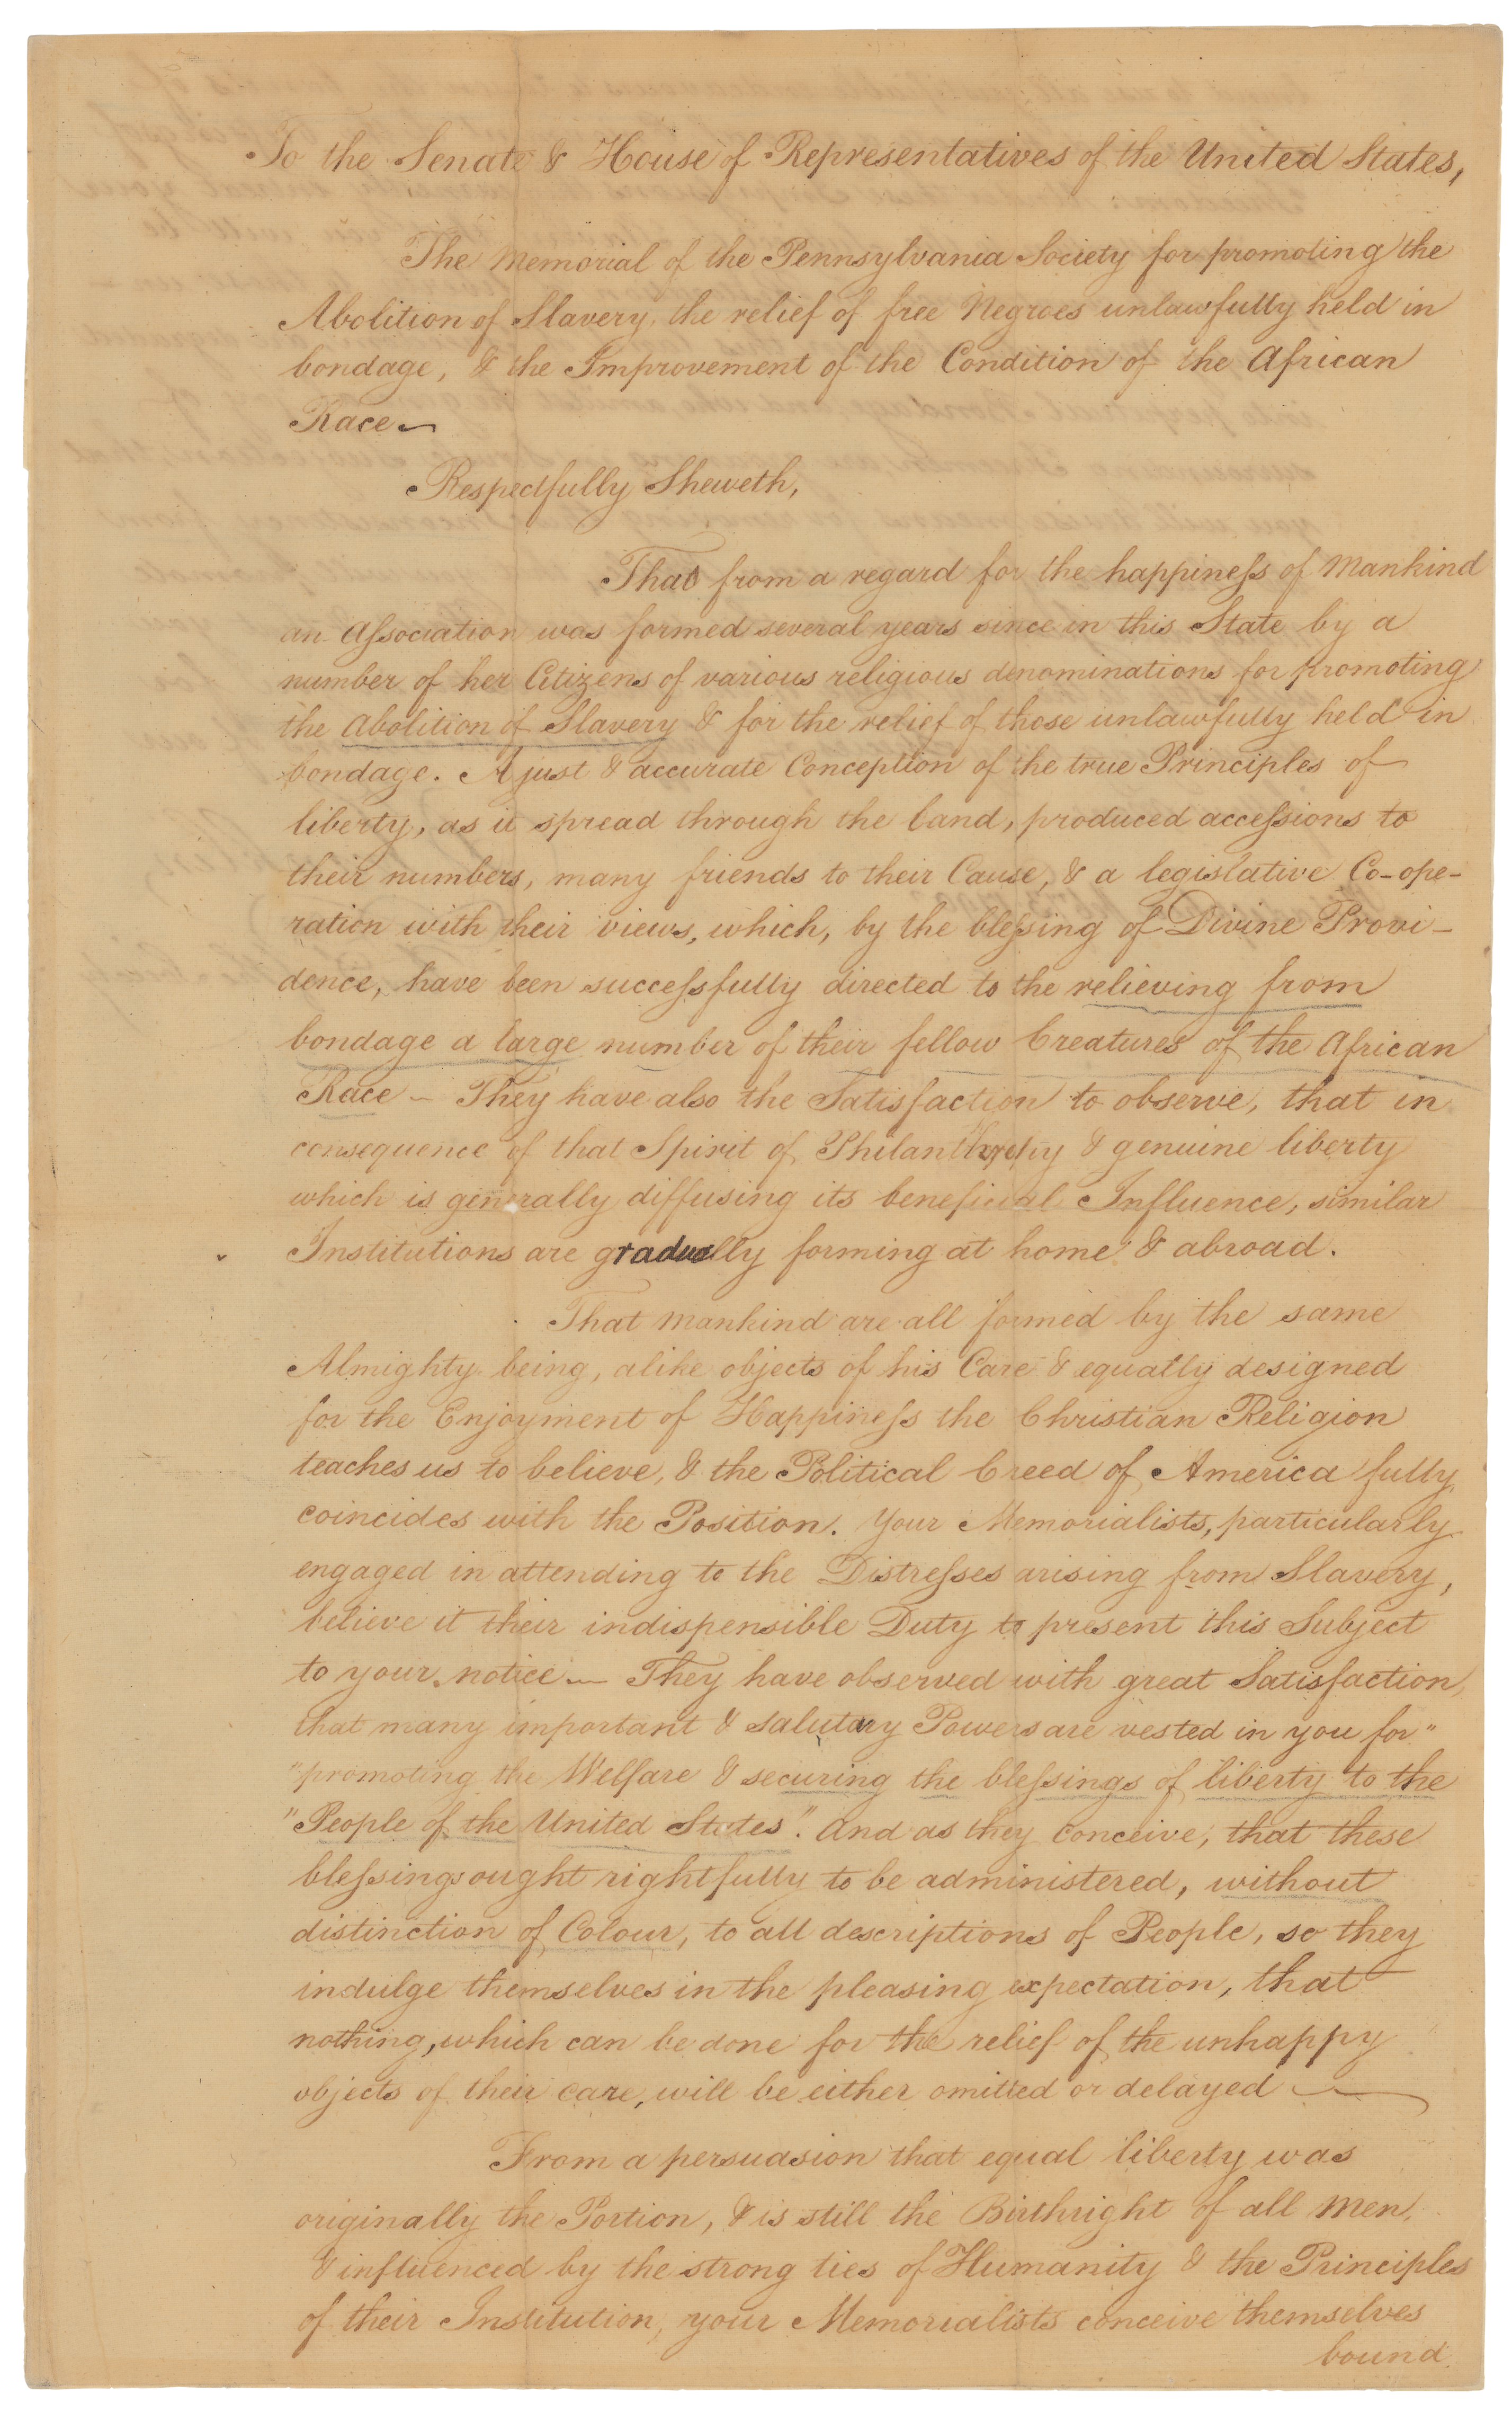 To the Senate & House of Representatives of the United States,
The Memorial of the Pennsylvania Society for promoting the
Abolition of Slavery, the relief of free Negroes unlawfully held in
bondage, & the Improvement of the Condition of the African
Race —
Respectfully Sheweth,
That from a regard for the happiness of Mankind
an Association was formed several years since in this State by a
number of her Citizens of various religious denominations for promoting
the Abolition of Slavery & for the relief of those unlawfully held in
bondage. A just & accurate Conception of the true Principles of
liberty, as it spread through the land, produced accessions to
their numbers, many friends to their Cause, & a legislative Co-ope-
ration with their views, which, by the blessing of Divine Provi-
dence, have been successfully directed to the relieving from
bondage a large number of their fellow Creatures of the African
Race — They have also the Satisfaction to observe, that in
consequence of that Spirit of Philanthropy & genuine liberty
which is generally diffusing its beneficial Influence, similar
Institutions are gradually forming at home & abroad.
That mankind are all formed by the same
Almighty being, alike objects of his Care & equally designed
for the Enjoyment of Happiness the Christian Religion
teaches us to believe, & the Political Creed of America fully
coincides with the Position. Your Memorialists, particularly
engaged in attending to the Distresses arising from Slavery,
believe it their indispensible Duty to present this Subject
to your notice — They have observed with great Satisfaction,
that many important & salutary Powers are vested in you for"
"promoting the Welfare & securing the blessings of liberty to the
"People of the United States". And as they conceive, that these
blessings ought rightfully to be administered, without
distinction of Colour, to all descriptions of People, so they
indulge themselves in the pleasing expectation, that
nothing, which can be done for the relief of the unhappy
objects of their care, will be either omitted or delayed —
From a persuasion that equal liberty was
originally the Portion, & is still the Birthright of all Men,
& influenced by the strong ties of Humanity & the Principles
of their Institution, your Memorialists conceive themselves
bound